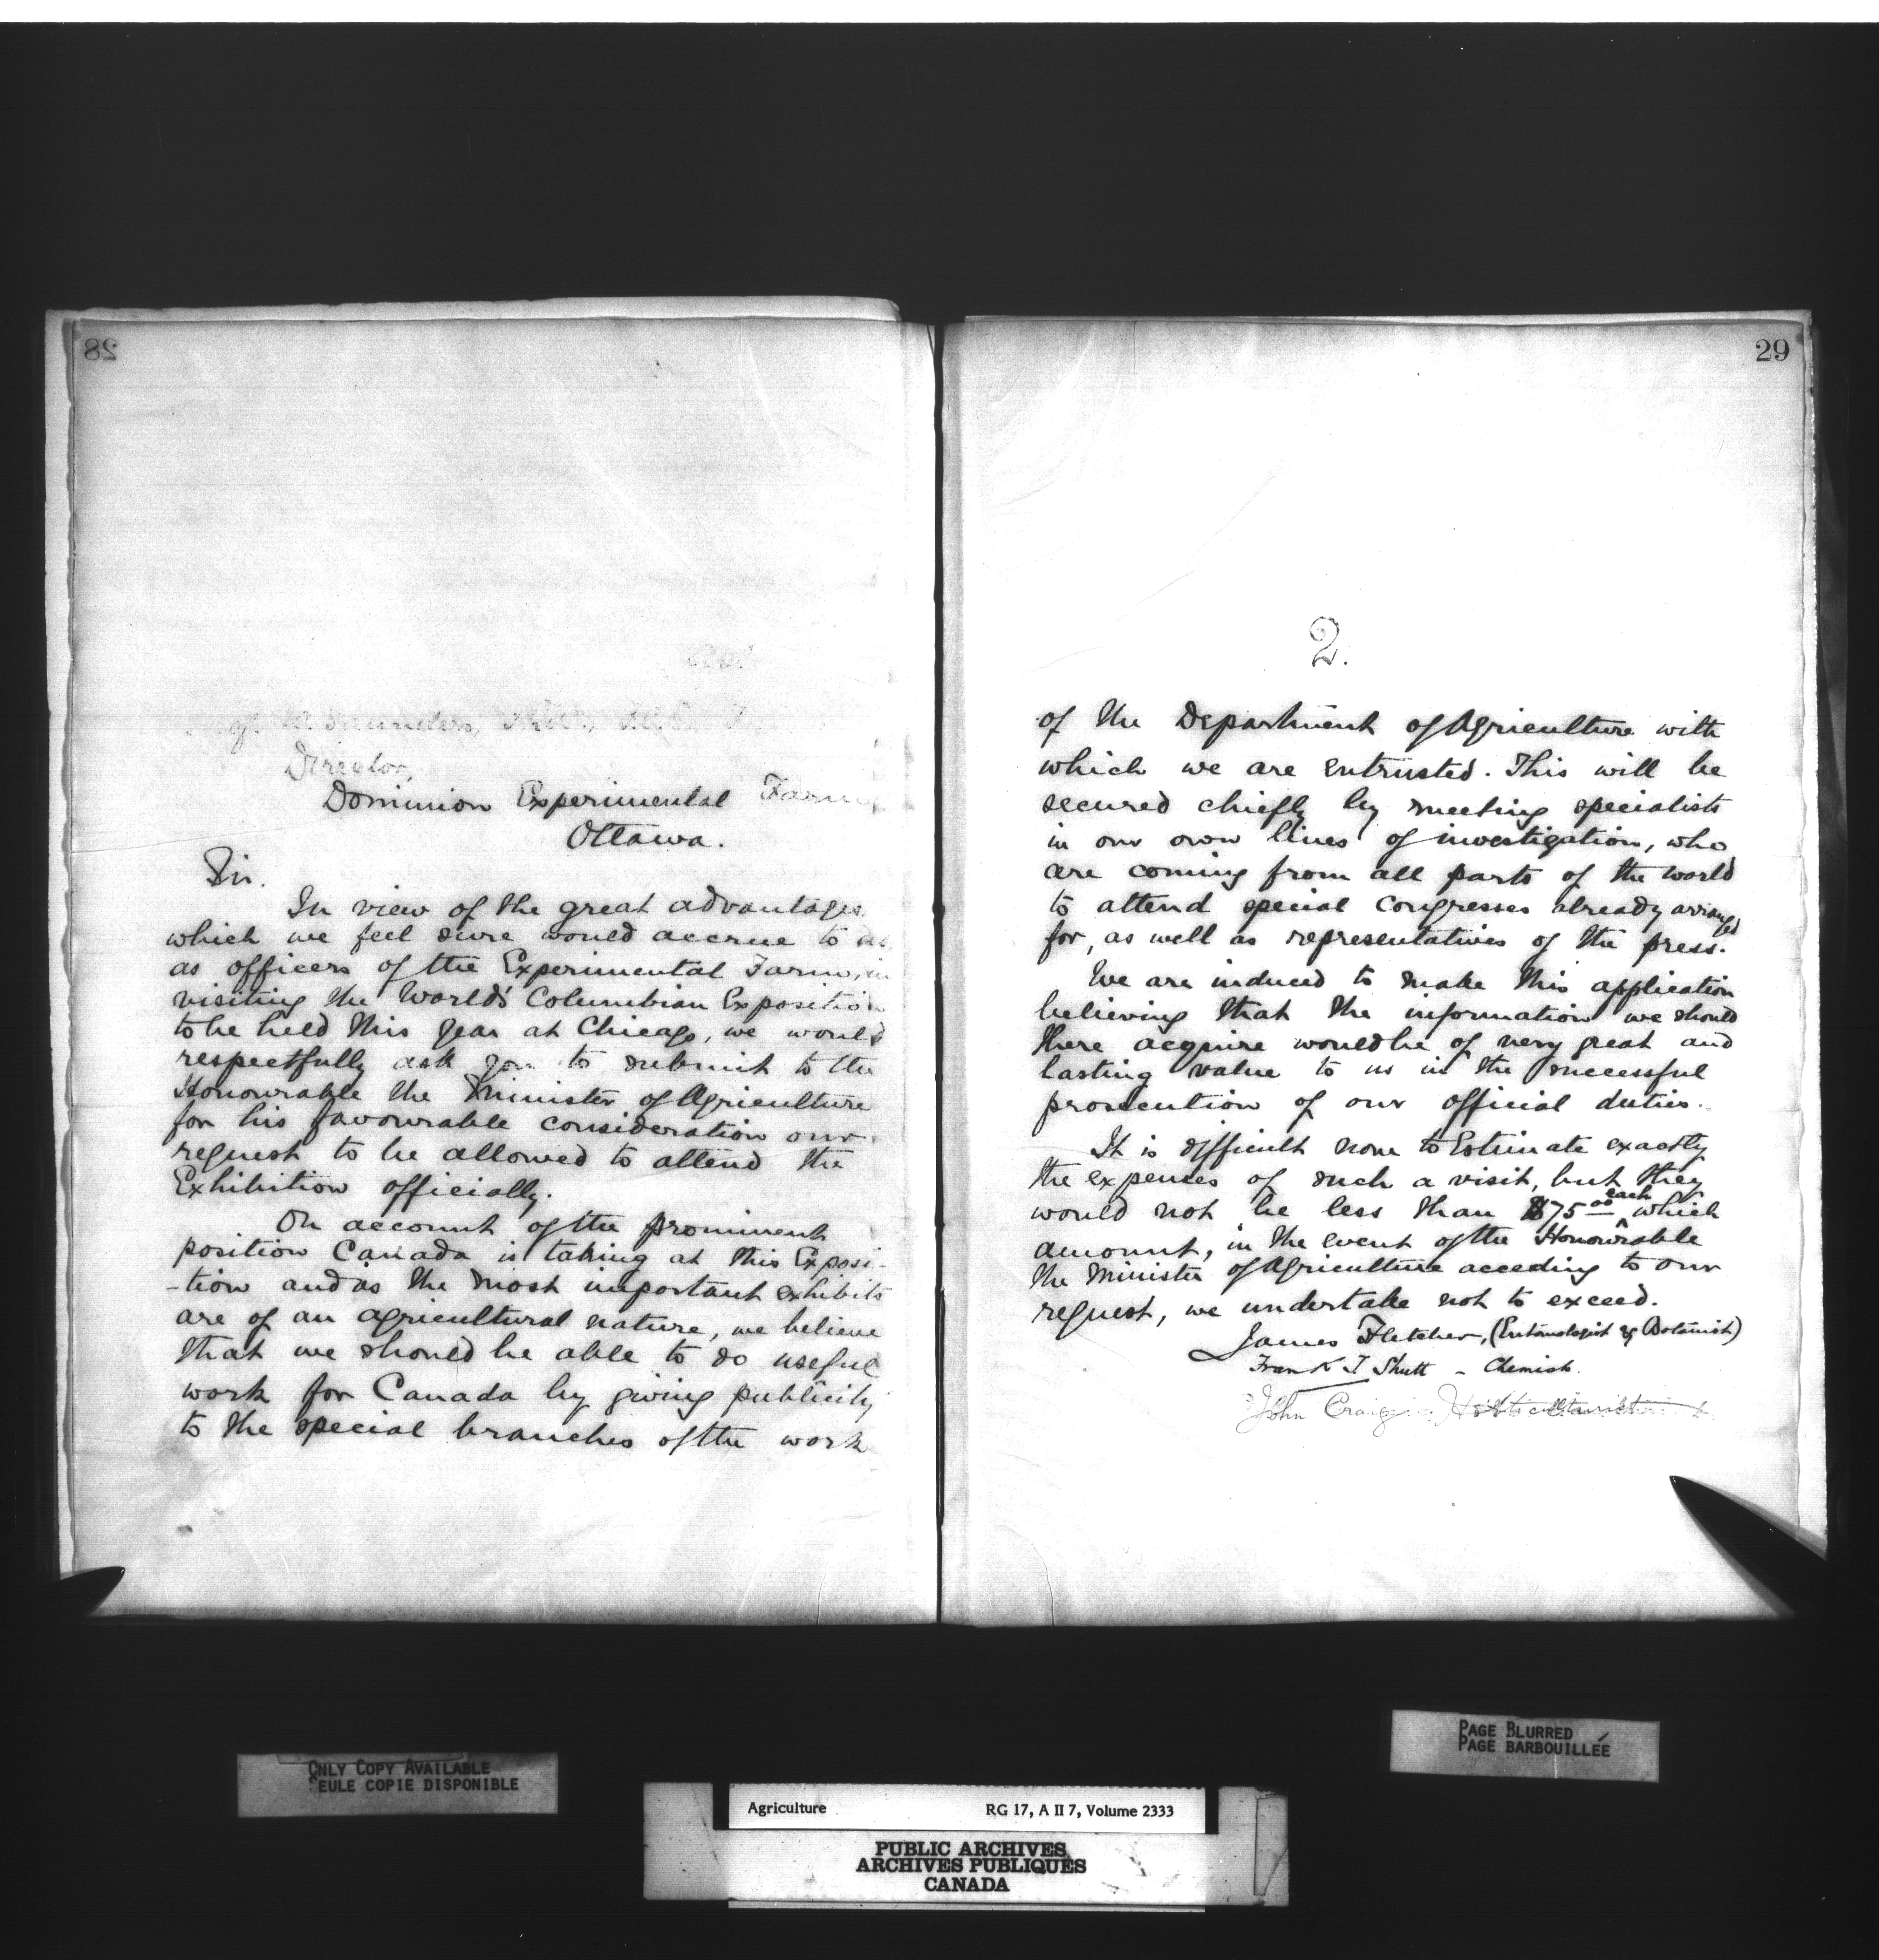 28
W. Saunders,
Director,
Dominion Experimental Farms
Ottawa.
Sir.
In view of the great advantages
which we feel sure would accrue to us,
as officers of the Experimental Farm, in
visiting the World's Columbian Exposition
to be held this year at Chicago, we would
respectfully ask you to submit to the
Honourable the Minister of Agriculture
for his favourable consideration our
request to be allowed to attend the
Exhibition officially.
On account of the prominent
position Canada is taking at this Exposi-
-tion and as the most important exhibits
are of an agricultural nature, we believe
that we should be able to do useful
work for Canada by giving publicity
to the special branches of the work
29
2.
of the Department of Agriculture with
which we are entrusted. This will be
secured chiefly by meeting specialists
in our own lines of investigation, who
are coming from all parts of the world
to attend special Congresses already arranged
for, as well as representatives of the press.
We are induced to make this application
believing that the information we should
there acquire would be of very great and
lasting value to us in the successful
prosecution of our official duties.
It is difficult now to Estimate exactly
the expenses of such a visit, but they
would not be less than $75 00 each which
amount, in the event of the Honourable
the Minister of Agriculture acceding to our
request, we undertake not to exceed.
James Fletcher, (Entomologist & Botanist)
Frank T Shutt - Chemist.
John Craig - Horticulturist
ONLY COPY AVAILABLE
SEULE COPIE DISPONIBLE
PAGE BLURRED
PAGE BARBOUILLÉE
Agriculture RG 17, A II 7, Volume 2333
PUBLIC ARCHIVES
ARCHIVES PUBLIQUES
CANADA